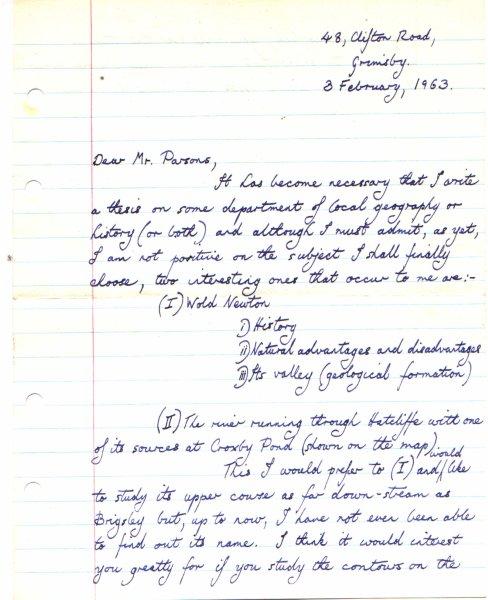 48, Clifton Road,
Grimsby.
3 February, 1963.
Dear Mr. Parsons,
It has become necessary that I write
a thesis on some department of local geography or
history (or both) and although I must admit, as yet,
I am not positive on the subject I shall finally
choose, two interesting ones that occur to me are:-
(I) Wold Newton
i) History
ii) Natural advantages and disadvantages
iii) Its valley (geological formation)
(II) The river running through Hatcliffe with one
of its sources at Croxby Pond (shown on the map)
This I would prefer to (I) and would like
to study its upper course as far down-stream as
Brigsley but, up to now, I have not even been able
to find out its name. I think it would interest
you greatly for if you study the contours on the